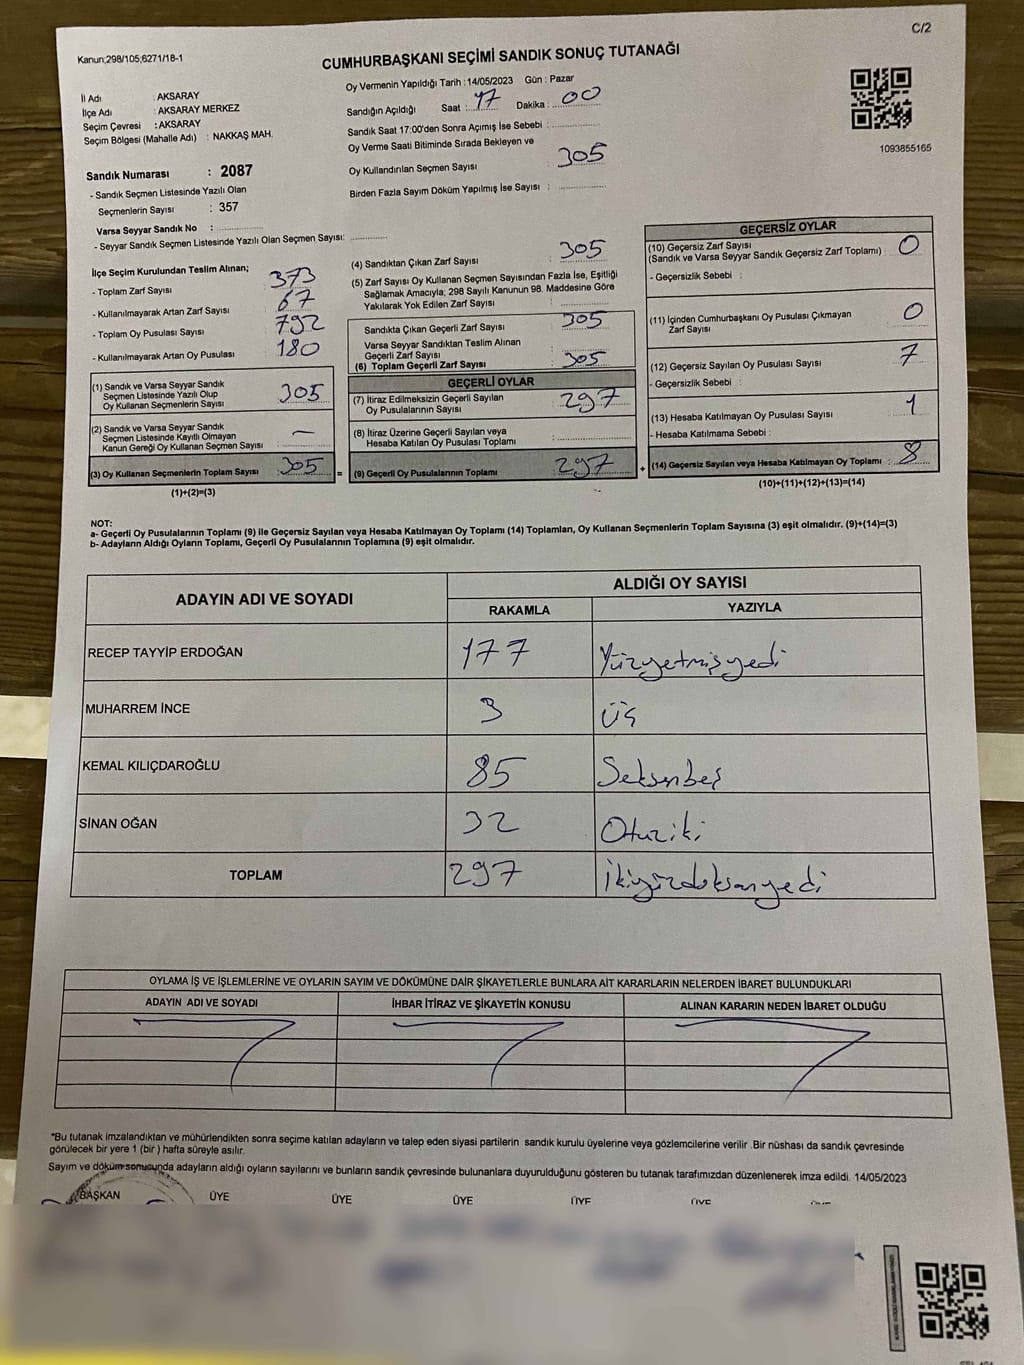 C/2
Kanun;298/105;6271/18-1
CUMHURBAŞKANI SEÇİMİ SANDIK SONUÇ TUTANAĞI
Oy Vermenin Yapıldığı Tarih : 14/05/2023 Gün : Pazar
İl Adı : AKSARAY
İlçe Adı : AKSARAY MERKEZ
Seçim Çevresi : AKSARAY
Seçim Bölgesi (Mahalle Adı) : NAKKAŞ MAH.
Sandığın Açıldığı Saat : 17 Dakika : 00
Sandık Saat 17:00'den Sonra Açımış İse Sebebi :
Oy Verme Saati Bitiminde Sırada Bekleyen ve
Oy Kullandırılan Seçmen Sayısı : 305
Birden Fazla Sayım Döküm Yapılmış İse Sayısı :
1093855165
Sandık Numarası : 2087
- Sandık Seçmen Listesinde Yazılı Olan
Seçmenlerin Sayısı : 357
Varsa Seyyar Sandık No :
- Seyyar Sandık Seçmen Listesinde Yazılı Olan Seçmen Sayısı:
İlçe Seçim Kurulundan Teslim Alınan;
- Toplam Zarf Sayısı : 373
- Kullanılmayarak Artan Zarf Sayısı : 67
- Toplam Oy Pusulası Sayısı : 792
- Kullanılmayarak Artan Oy Pusulası : 180
(1) Sandık ve Varsa Seyyar Sandık
Seçmen Listesinde Yazılı Olup
Oy Kullanan Seçmenlerin Sayısı : 305
(2) Sandık ve Varsa Seyyar Sandık
Seçmen Listesinde Kayıtlı Olmayan
Kanun Gereği Oy Kullanan Seçmen Sayısı : —
(3) Oy Kullanan Seçmenlerin Toplam Sayısı : 305 =
(1)+(2)=(3)
(4) Sandıktan Çıkan Zarf Sayısı : 305
(5) Zarf Sayısı Oy Kullanan Seçmen Sayısından Fazla İse, Eşitliği
Sağlamak Amacıyla; 298 Sayılı Kanunun 98. Maddesine Göre
Yakılarak Yok Edilen Zarf Sayısı :
Sandıkta Çıkan Geçerli Zarf Sayısı : 305
Varsa Seyyar Sandıktan Teslim Alınan
Geçerli Zarf Sayısı :
(6) Toplam Geçerli Zarf Sayısı : 305
GEÇERLİ OYLAR
(7) İtiraz Edilmeksizin Geçerli Sayılan
Oy Pusulalarının Sayısı : 297
(8) İtiraz Üzerine Geçerli Sayılan veya
Hesaba Katılan Oy Pusulası Toplamı :
(9) Geçerli Oy Pusulalarının Toplamı : 297 +
GEÇERSİZ OYLAR
(10) Geçersiz Zarf Sayısı
(Sandık ve Varsa Seyyar Sandık Geçersiz Zarf Toplamı) : 0
- Geçersizlik Sebebi :
(11) İçinden Cumhurbaşkanı Oy Pusulası Çıkmayan
Zarf Sayısı : 0
(12) Geçersiz Sayılan Oy Pusulası Sayısı : 7
- Geçersizlik Sebebi :
(13) Hesaba Katılmayan Oy Pusulası Sayısı : 1
- Hesaba Katılmama Sebebi :
(14) Geçersiz Sayılan veya Hesaba Katılmayan Oy Toplamı : 8
(10)+(11)+(12)+(13)=(14)
NOT:
a- Geçerli Oy Pusulalarının Toplamı (9) ile Geçersiz Sayılan veya Hesaba Katılmayan Oy Toplamı (14) Toplamları, Oy Kullanan Seçmenlerin Toplam Sayısına (3) eşit olmalıdır. (9)+(14)=(3)
b- Adayların Aldığı Oyların Toplamı, Geçerli Oy Pusulalarının Toplamına (9) eşit olmalıdır.
ADAYIN ADI VE SOYADI ALDIĞI OY SAYISI
RAKAMLA YAZIYLA
RECEP TAYYİP ERDOĞAN 177 Yüzyetmişyedi
MUHARREM İNCE 3 Üç
KEMAL KILIÇDAROĞLU 85 Seksenbeş
SİNAN OĞAN 32 Otuziki
TOPLAM 297 İkiyüzdoksanyedi
OYLAMA İŞ VE İŞLEMLERİNE VE OYLARIN SAYIM VE DÖKÜMÜNE DAİR ŞİKAYETLERLE BUNLARA AİT KARARLARIN NELERDEN İBARET BULUNDUKLARI
ADAYIN ADI VE SOYADI İHBAR İTİRAZ VE ŞİKAYETİN KONUSU ALINAN KARARIN NEDEN İBARET OLDUĞU
*Bu tutanak imzalandıktan ve mühürlendikten sonra seçime katılan adayların ve talep eden siyasi partilerin sandık kurulu üyelerine veya gözlemcilerine verilir .Bir nüshası da sandık çevresinde
görülecek bir yere 1 (bir ) hafta süreyle asılır.
Sayım ve döküm sonucunda adayların aldığı oyların sayılarını ve bunların sandık çevresinde bulunanlara duyurulduğunu gösteren bu tutanak tarafımızdan düzenlenerek imza edildi. 14/05/2023
BAŞKAN ÜYE ÜYE ÜYE ÜYE ÜYE